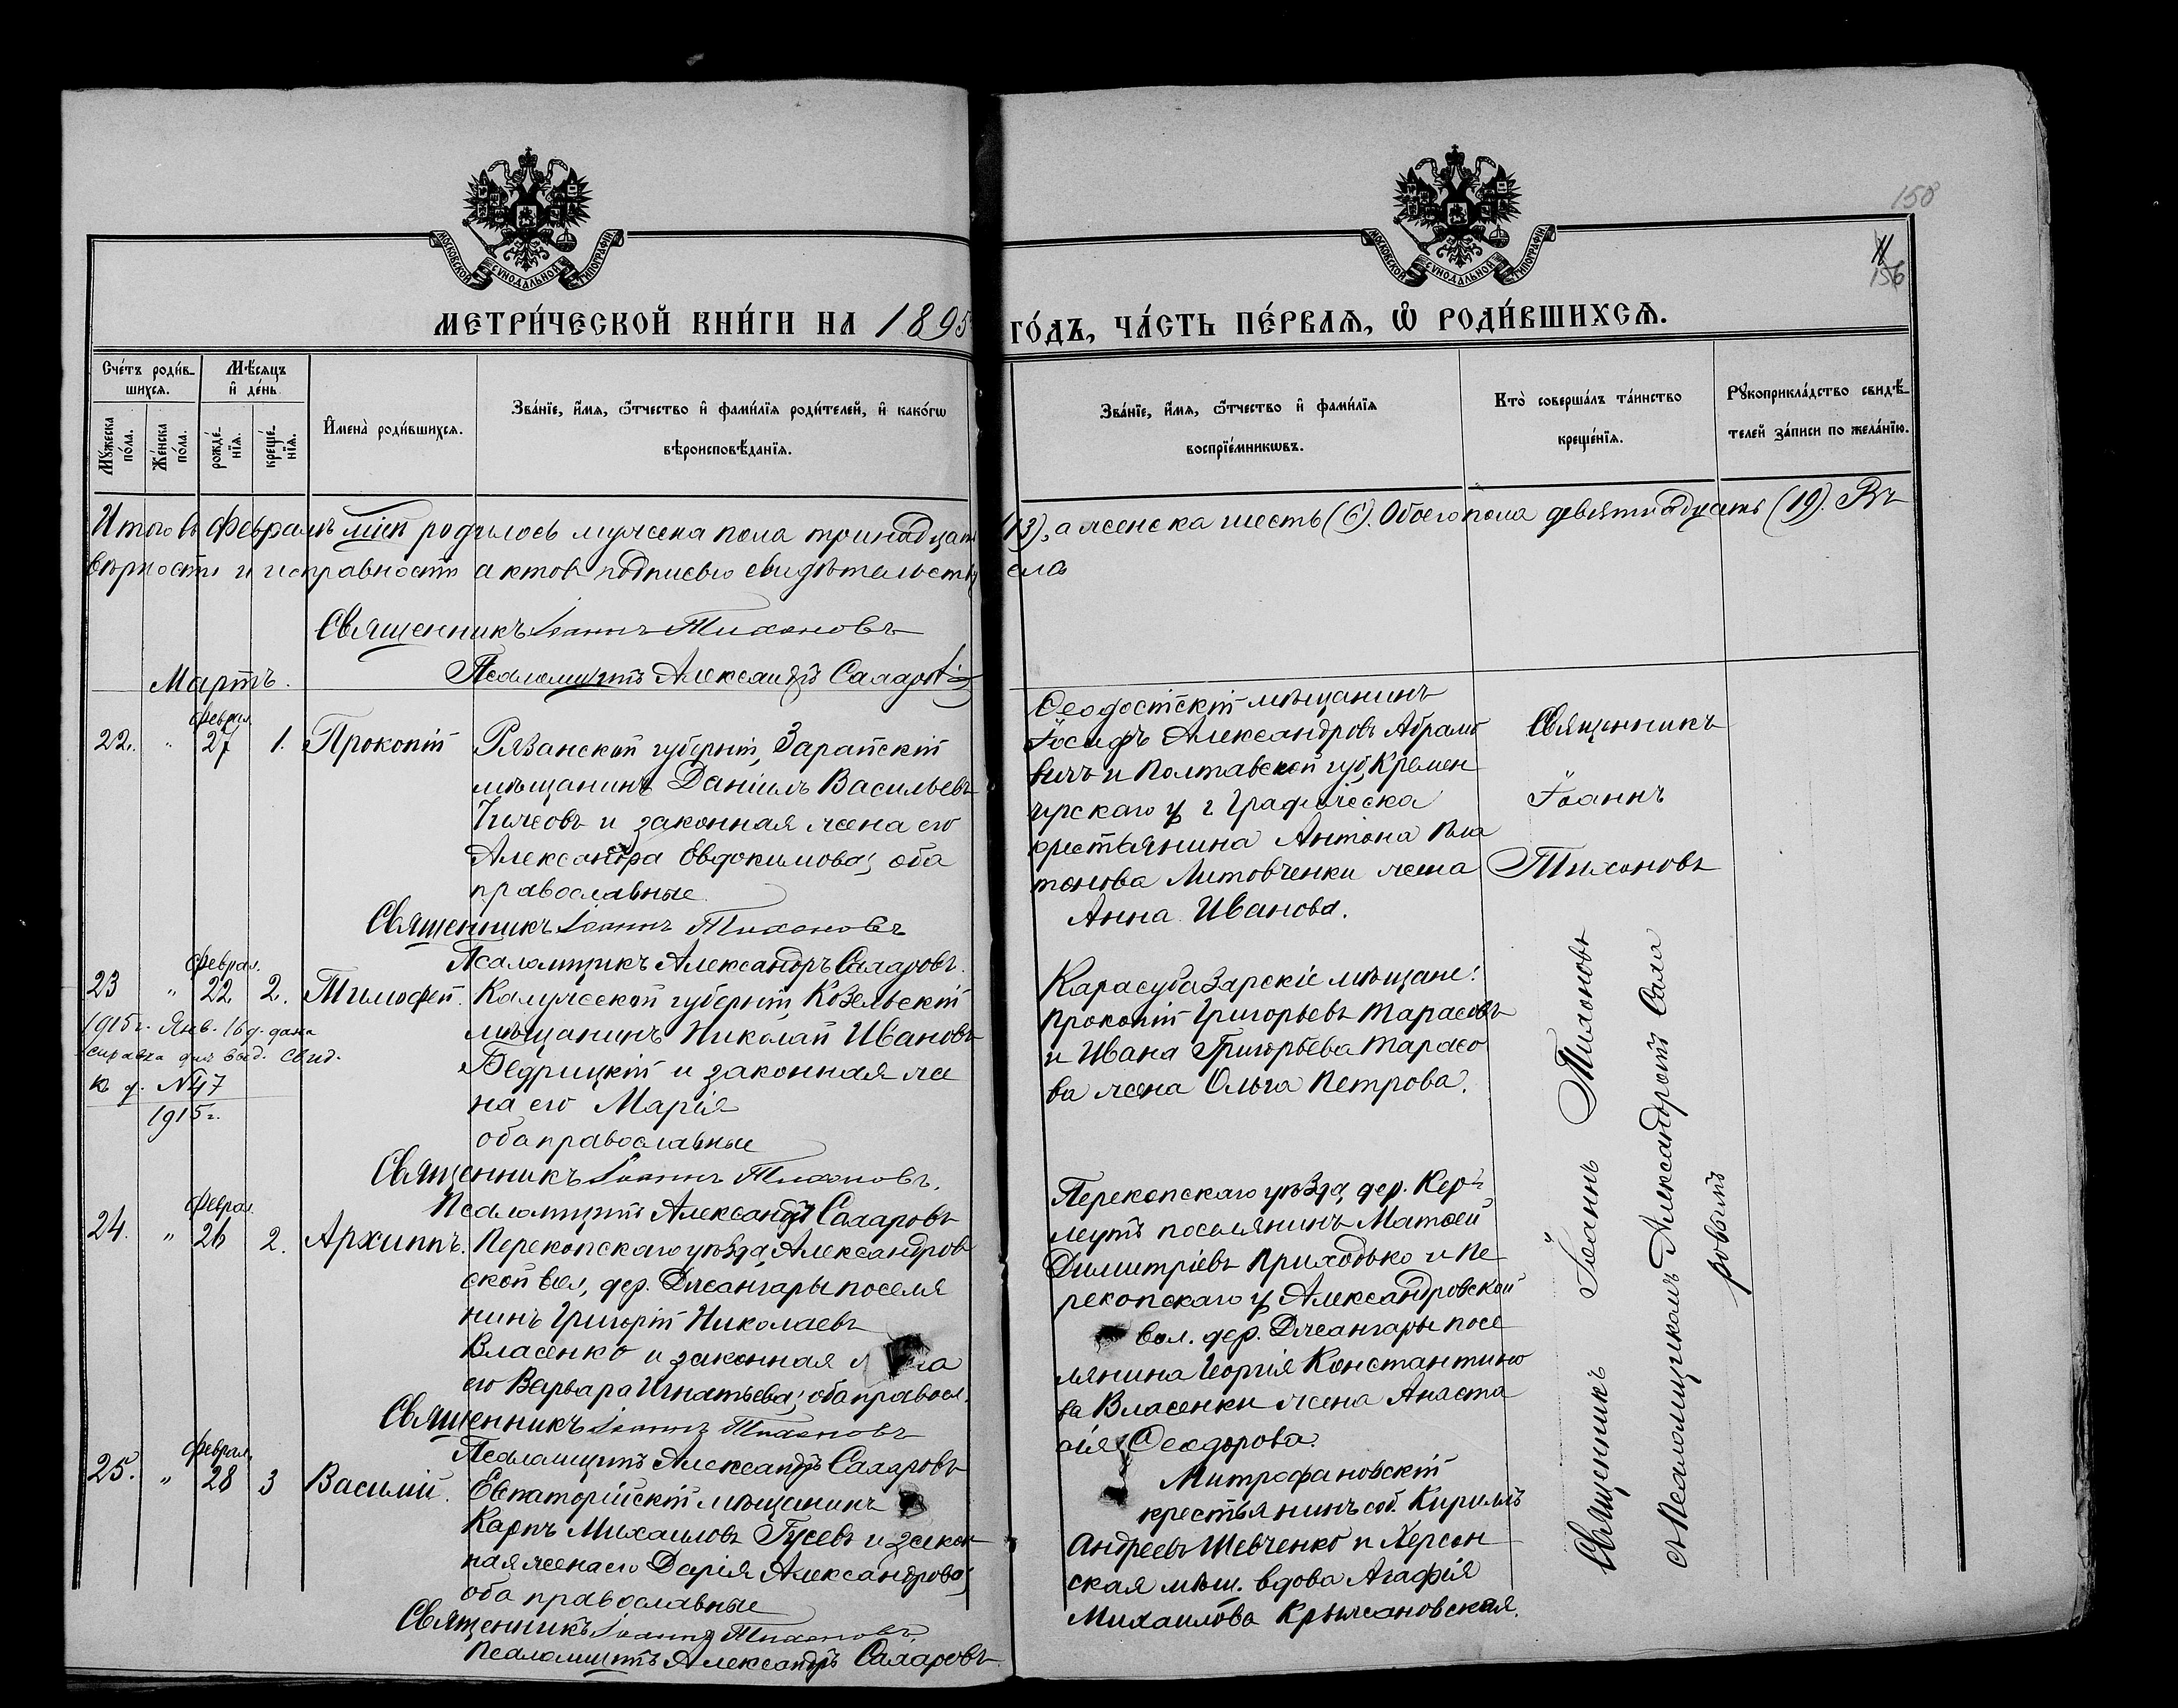 МОСКОВСКОЙ СѴНОДАЛЬНОЙ ТИПОГРАФІИ
МОСКОВСКОЙ СѴНОДАЛЬНОЙ ТИПОГРАФІИ
158
156
МЕТРИ́ЧЕСКОЙ КНИ́ГИ НА 1895 ГО́ДЪ, ЧА́СТЬ ПЕ́РВАѦ, Ѡ҆ РОДИ́ВШИХСѦ.
Сче́тъ роди́в-
шихсѧ.
Мꙋ́жеска по́ла.
Же́нска по́ла.
Мѣ́сѧцъ
и҆ де́нь
рожде́-
нїѧ.
креще́-
нїѧ.
И҆мена̀ роди́вшихсѧ.
Зва́нїе, и҆́мѧ, ѻ҆́тчество и҆ фами́лїѧ роди́телей, и҆ како́гѡ
вѣроисповѣ́данїѧ.
Зва́нїе, и҆́мѧ, ѻ҆́тчество и҆ фами́лїѧ
воспрїе́мникѡвъ.
Кто̀ соверша́лъ та́инство
креще́нїѧ.
Рꙋкоприкла́дство свидѣ́-
телей за́писи по жела́нїю.
Итого въ Февралѣ м‑цѣ родилось мужеска пола тринадцать (13), а женска шесть (6). Обоего пола девятнадцать (19). Въ
вѣрности и исправности актовъ подписью свидѣтельству
Священникъ Іоаннъ Тихоновъ
Псаломщикъ Александръ Сахаровъ
Мартъ.
22. " Феврал. 27 1. Прокопій
Рязанской губерніи, Зарайскій
мѣщанинъ Даніилъ Васильевъ
и законная жена его
Александра Евдокимова; оба
православные
Священникъ Іоаннъ Тихоновъ
Псаломщикъ Александръ Сахаровъ.
Ѳеодосійскій мѣщанинъ
Іосифъ Александровъ Абрамо
вичъ и Полтавской губ. Кремен
чугскаго у. г. Градижска
крестьянина Антона Пла
тонова Литовченки жена
Анна Иванова.
Священникъ
Іоаннъ
Тихоновъ
23 " Феврал. 22 2. Тимофей.
1915 г. Янв. 16 д. дана
справка для выд. свид.
к д. №47
1915 г.
Калужской губерніи, Козельскій
мѣщанинъ Николай Ивановъ
Бедрицкій и законная же
на его Марія
оба православные
Священникъ Іоаннъ Тихоновъ.
Псаломщикъ Александръ Сахаровъ
Карасубазарскіе мѣщане:
Прокопій Григорьевъ Тарасовъ
и Ивана Григорьева Тарасо
ва жена Ольга Петрова.
24. " Феврал. 26 2. Архиппъ.
Перекопскаго уѣзда, Александров
ской вол., дер. Джангары поселя
нинъ Григорій Николаевъ
Власенко и законная
его Варвара Игнатьева; оба правосл.
Священникъ Іоаннъ Тихоновъ
Псаломщикъ Александръ Сахаровъ
Перекопскаго уѣзда, дер.
поселянинъ Матѳей
Димитріевъ Приходько и Пе-
рекопскаго у. Александровской
вол. дер. Джангары посе
лянина Георгія Константино
ва Власенки жена Анаста
сія Ѳеодорова.
25. " Феврал. 28 3 Василій.
Евпаторійскій мѣщанинъ
Карпъ Михаиловъ Гусевъ и закон
ная жена его Дарія Александрова;
оба православные
Священникъ Іоаннъ Тихоновъ,
Псаломщикъ Александръ Сахаровъ
Митрофановскій
крестьянинъ соб. Кириллъ
Андреевъ Шевченко и Херсон
ская мѣщ. вдова Агафія
Михаилова Крыжановская.
Священникъ Іоаннъ Тихоновъ
съ Псаломщикомъ Александромъ Саха
ровымъ